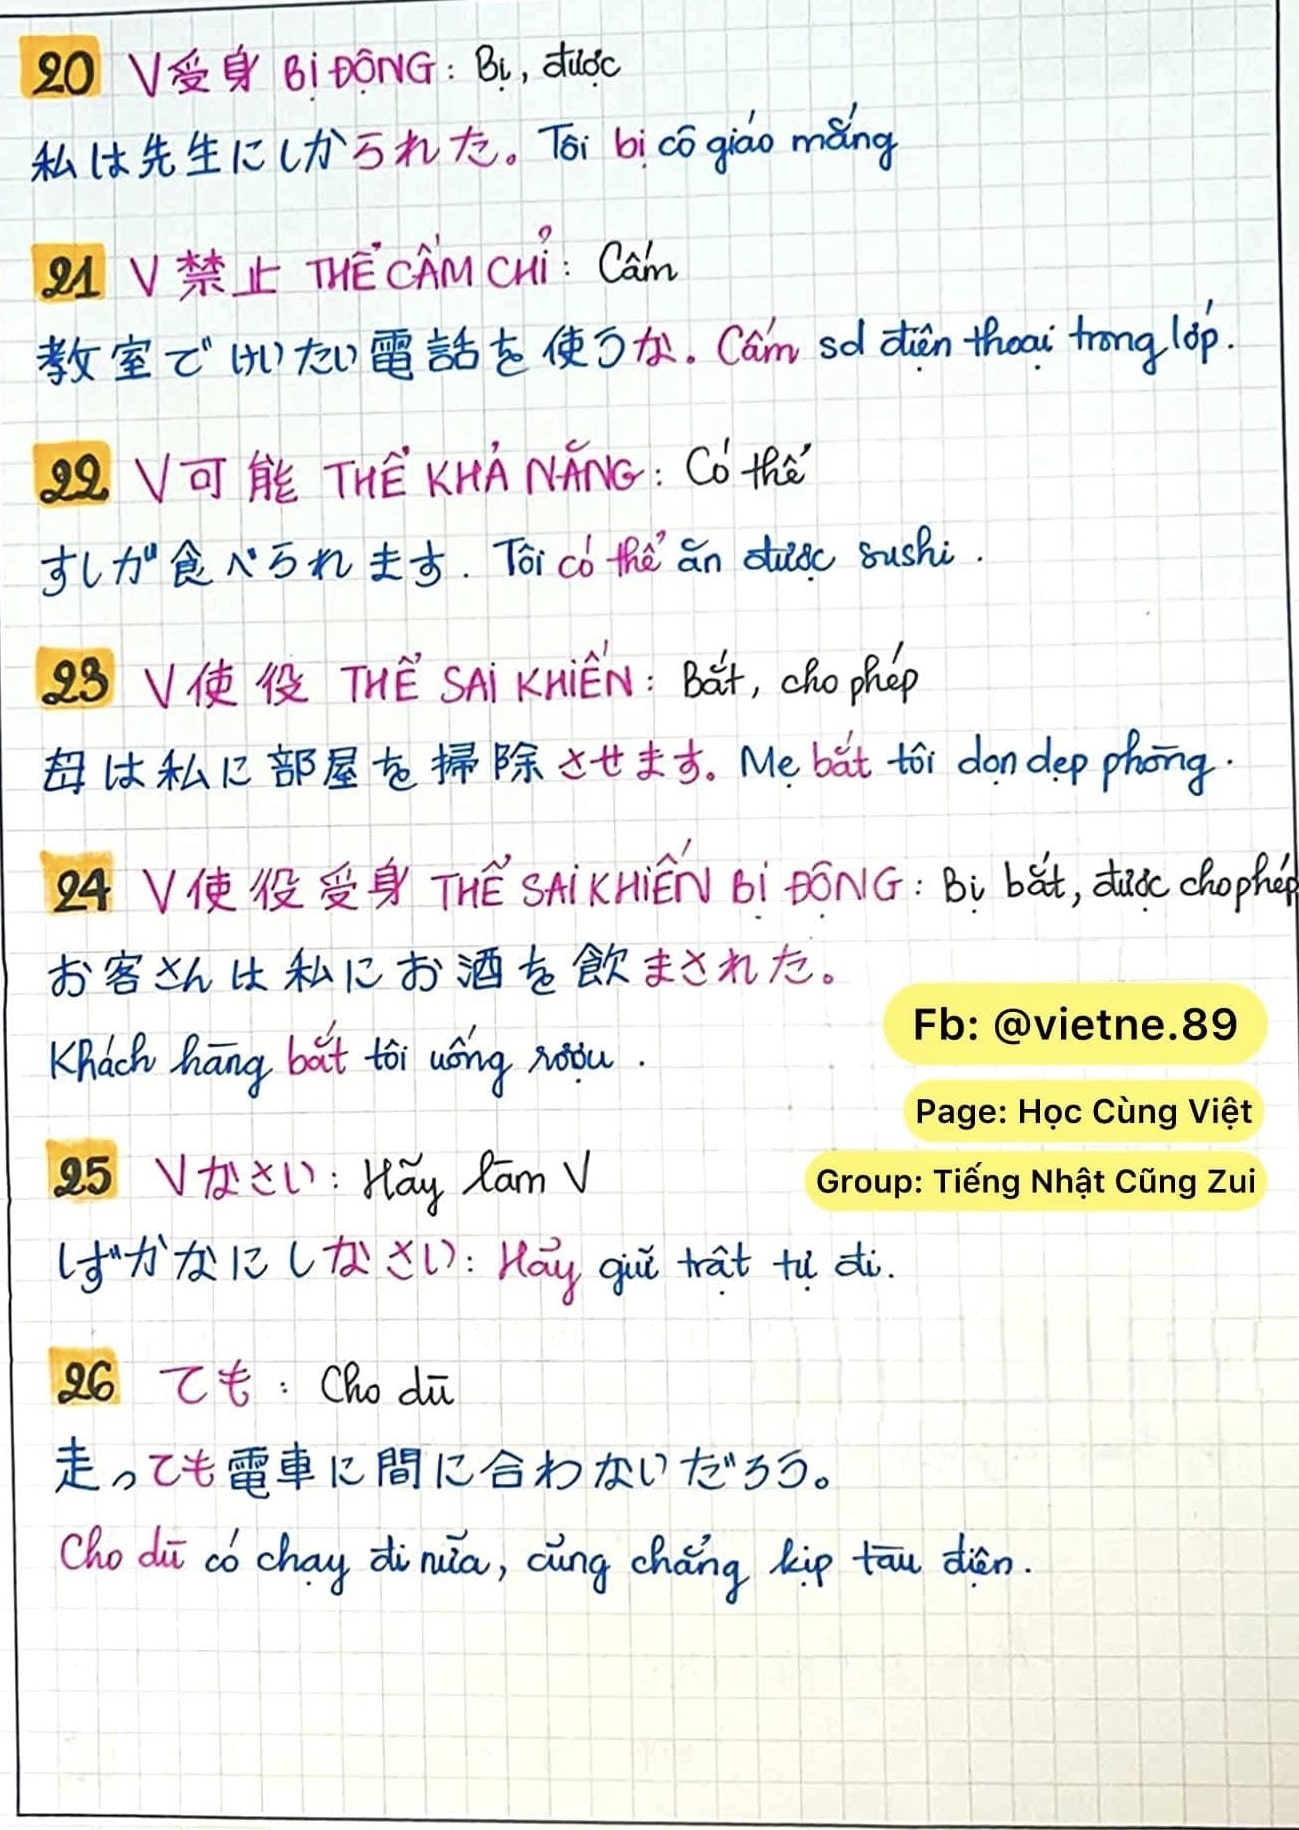 20 V受身 BỊ ĐỘNG: Bị, được
私は先生にしかられた。Tôi bị cô giáo mắng
21 V禁止 THỂ CẤM CHỈ: Cấm
教室でけいたい電話を使うな。Cấm sd điện thoại trong lớp.
22 V可能 THỂ KHẢ NĂNG: Có thể
すしが食べられます. Tôi có thể ăn được sushi.
23 V使役 THỂ SAI KHIẾN: Bắt, cho phép
母は私に部屋を掃除させます。Mẹ bắt tôi dọn dẹp phòng.
24 V使役受身 THỂ SAI KHIẾN BỊ ĐỘNG: Bị bắt, được cho phép
お客さんは私にお酒を飲まされた。
Khách hàng bắt tôi uống rượu.
Fb: @vietne.89
Page: Học Cùng Việt
25 Vなさい: Hãy làm V
Group: Tiếng Nhật Cũng Zui
しずかなにしなさい: Hãy giữ trật tự đi.
26 ても: Cho dù
走っても電車に間に合わないだろう。
Cho dù có chạy đi nữa, cũng chẳng kịp tàu điện.